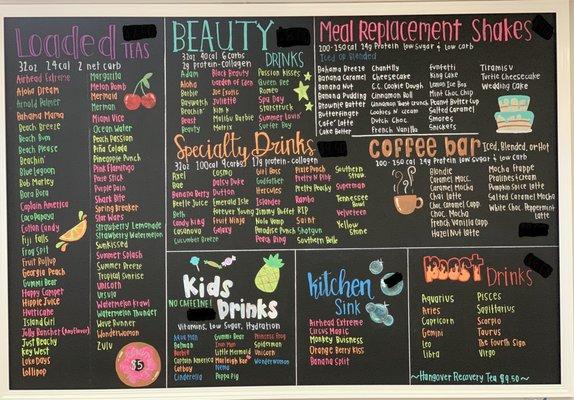 Loaded TEAS
32oz 24cal 2 net carb
Airhead Extreme
Aloha Dream
Arnold Palmer
Bahama Mama
Beach Breeze
Beach Bum
Beach Please
Beachin'
Blue Lagoon
Bob Marley
Bora Bora
Captain America
Coco Papaya
Cotton Candy
Fiji Falls
Frog Spit
Fruit Rollup
Georgia Peach
Gummi Bear
Happy Camper
Hippie Juice
Hurricane
Island Girl
Jolly Rancher (AnyFlavor)
Just Beachy
Key West
Lake Days
Lollipop
Margarita
Melon Bomb
Mermaid
Merman
Miami Vice
Ocean Water
Beach Passion
Piña Colada
Pineapple Punch
Pink Flamingo
Pixie Stick
Purple Rain
Shark Bite
Spring Breaker
Star Wars
Strawberry Lemonade
Strawberry Watermelon
Sunkissed
Summer Splash
Summer Breeze
Tropical Sunrise
Unicorn
Ursula
Watermelon Krawl
Watermelon Thunder
Wave Runner
Wonderwoman
Zulu
$5
BEAUTY DRINKS
32oz 40cal 6 carbs
2g protein-collagen
Adam
Aloha
Barbie
Baywatch
Beachin'
Beast
Beauty
Black Beauty
Garden of Eden
Joe Exotic
Juliette
Kim K
Malibu Barbie
Matrix
Passion Kisses
Queen Bee
Romeo
Spa Day
Starstruck
Summer Lovin'
Surfer Boy
Meal Replacement Shakes
200-250 cal 24g Protein low sugar & low carb
Iced or Blended
Bahama Breeze
Banana Caramel
Banana Nut
Banana Pudding
Brownie Batter
Butterfinger
Cafe' Latte
Cake Batter
Chantilly
Cheesecake
C.C. Cookie Dough
Cinnamon Roll
Cinnamon Toast Crunch
Cookies n Cream
Dutch Choc.
French Vanilla
Funfetti
King Cake
Lemon Ice Box
Mint Choc Chip
Peanut Butter Cup
Salted Caramel
Smores
Snickers
Tiramisu
Turtle Cheesecake
Wedding Cake
Specialty Drinks
32oz 100cal 4carbs 17g protein-collagen
Axel
Bae
Banana Berry
Beetle Juice
Beth
Candy King
Casanova
Cucumber Breeze
Cosmo
Daisy Duke
Dutton
Emerald Isle
Forever Young
Fruity Ninja
Galaxy
Girl Boss
Godfather
Hercules
Islander
Jimmy Buffett
Kolo Wamp
Paradise Punch
Perca Bing
Pixie Stick
Pretty N Pink
Pretty Peachy
Rambo
RIP
Saint
Shotgun
Southern Belle
Southern Straw
Superman
Tennessee Bay
Velveteen
Yellow Stone
COFFEE BAR Iced, Blended, or Hot
200-250 cal, 24g Protein low sugar & low carb
Blondie
Caramel Macc.
Caramel Mocha
Chai Latte
Choc Caramel Capp.
Choc Mocha
French Vanilla Capp
Hazelnut Latte
Mocha Frappé
Pralines Cream
Pumpkin Spice Latte
Salted Caramel Mocha
White Choc. Peppermint
Latte
Kids Drinks
NO CAFFEINE!
Vitamins, Low Sugar, Hydration
Batman
Barbie
Captain America
Catboy
Cinderella
Gummi Bear
Iron Man
Little Mermaid
Marleigh Rae
Nemo
Peppa Pig
Princess Frog
Spiderman
Unicorn
Wonderwoman
Kitchen Sink
Airhead Extreme
Circus Magic
Monkey Business
Orange Berry Kiss
Banana Split
Boost Drinks
Aquarius
Aries
Capricorn
Gemini
Leo
Libra
Pisces
Sagittarius
Scorpio
Taurus
The Fourth Sign
Virgo
~Hangover Recovery Tea $9.50~